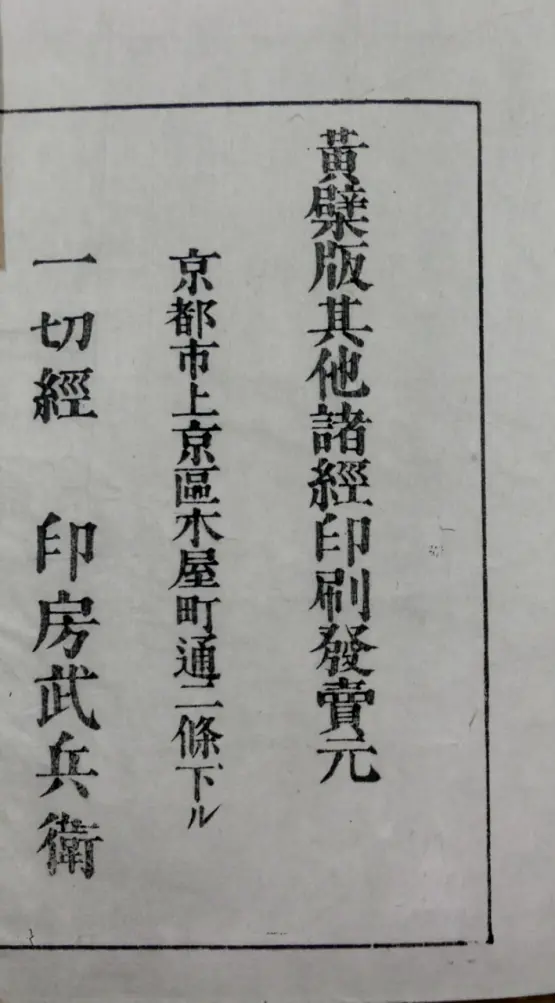 黃檗版其他諸經印刷發賣元
京都市上京區木屋町通二條下ル
一切經 印房武兵衛